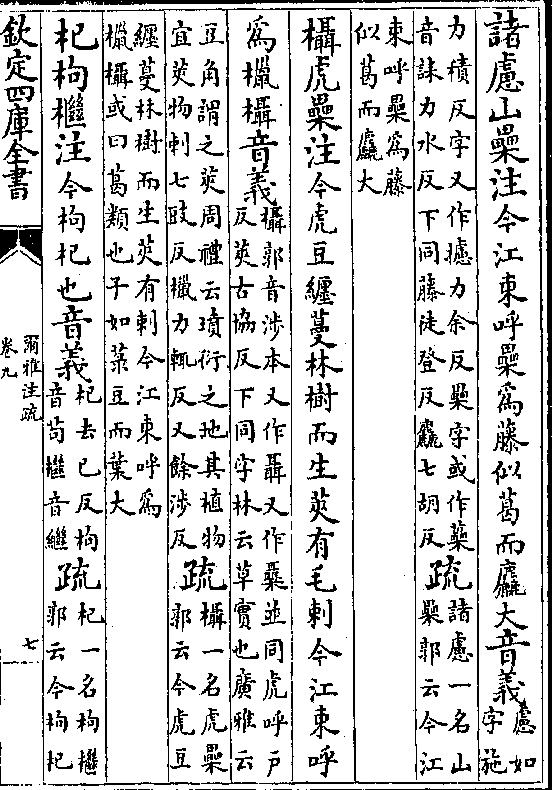 諸慮山櫐注今江東呼櫐爲藤似葛而麤大音義慮如字施
力積反字又作攄力余反櫐字或作蘽
音誄力水反下同藤徒登反麤七胡反疏諸慮一名山櫐郭云今江
東呼櫐爲藤
似葛而麤大
欇虎櫐注今虎豆纏蔓林樹而生莢有毛刺今江東呼
爲㯿欇音義欇郭音涉本又作聶又作㯿並同虎呼戸
反莢古協反下同字林云草實也廣雅云
豆角謂之莢周禮云墳衍之地其植物
宜莢物刺七豉反㯿力輒反又餘涉反疏欇一名虎櫐郭云今虎豆
纏蔓林樹而生莢有刺今江東呼爲
㯿欇或曰葛類也子如菉豆而葉大
杞枸檵注今枸杞也音義杞去已反枸
音苟檵音繼疏杞一名枸檵
郭云今枸杞
欽定四庫全書
爾雅注疏
卷九
七